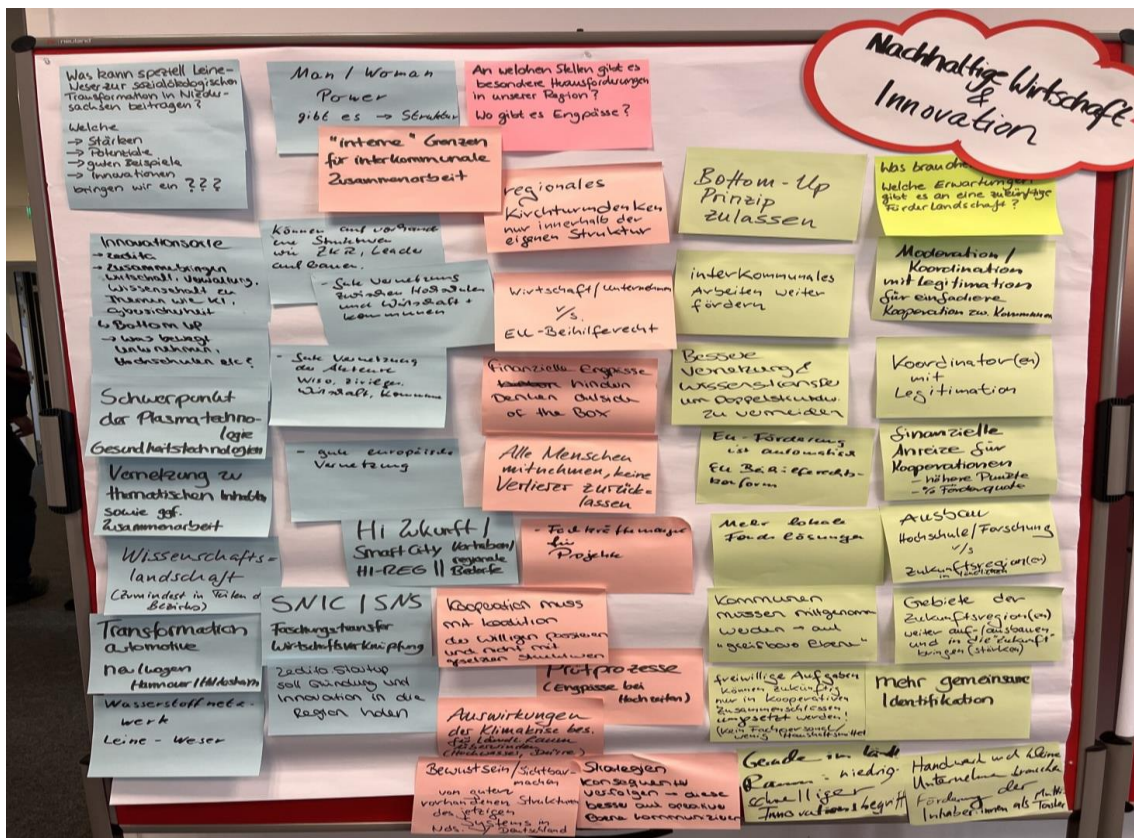 neuland
Nachhaltige Wirtschaft
&
Innovation
Was kann speziell Leine-
Weser zur sozialökologischen
Transformation in Niedersachsen
beitragen?
Welche
→ Stärken
→ Potenziale
→ guten Beispiele
→ Innovationen
bringen wir ein ???
Innovationsorte
→ zedita
→ Zusammenbringen
Wirtschaft, Verwaltung,
Wissenschaft zu
Themen wie KI,
Cybersicherheit
↳ Bottom up
→ was bewegt
Unternehmen,
Hochschulen etc?
Schwerpunkt
der Plasmatechno-
logie
Gesundheitstechnologien
Vernetzung zu
thematischen Inhalten
sowie ggf.
Zusammenarbeit
Wissenschafts=
landschaft
(Zumindest in Teilen d.
Bezirks)
Transformation
automotive
Hannover/Hildesheim
Wasserstoffnetz-
werk
Leine-Weser
Man / Woman
Power
gibt es → Struktur
"interne" Grenzen
für interkommunale
Zusammenarbeit
Können auf vorhand
ene Strukturen
wie ZKR, Leader
aufbauen.
- Gute Vernetzung
zwischen Hochschulen
und Wirtschaft +
Kommunen
- Gute Vernetzung
der Akteure
WiSo, Zivilges.
Wirtschaft, Kommune
- gute europäische
Vernetzung
Hi Zukunft /
Smart City Vorhaben/
HI-REG || regionale
Bedarfe
SNIC / SNS
Forschungstransfer
Wirtschaftsverknüpfung
Zedita Startup
soll Gründung und
Innovation in die
Region holen
An welchen Stellen gibt es
besondere Herausforderungen
in unserer Region?
Wo gibt es Engpässe?
regionales
Kirchturmdenken
nur innerhalb der
eigenen Struktur
Wirtschaft/Unternehmen
v/s.
EU-Beihilferecht
Finanzielle Engpässe
hindern
Denken outside
of the Box
Alle Menschen
mitnehmen, keine
Verlierer zurück-
lassen
- Fachkräftemangel
für
Projekte
Kooperation muss
mit Koalition
der Willigen passieren
und nicht mit
gesetzten Strukturen
Prüfprozesse
(Engpässe bei
Hochzeiten)
Auswirkungen
der Klimakrise bes.
für ländl. Raum
überwinden
(Hochwasser, Dürre)
Bewusstsein/Sichtbar-
machen
von guten
vorhandenen Strukturen
des jetzigen
Systems in
Nds. / Deutschland
Strategien
konsequenter
verfolgen → diese
besser auf operative
Ebene kommunizieren
Bottom-Up
Prinzip
zulassen
interkommunales
Arbeiten weiter
fördern
Bessere
Vernetzung &
Wissenstransfer
um Doppelstruktur.
zu vermeiden
EU-Förderung
ist automatisch
EU Beihilferechts-
konform
Mehr lokale
Fondslösungen
Kommunen
müssen mitgenomm
werden → auf
"greifbare Ebene"
freiwillige Aufgaben
können zukünftig
nur in kooperativen
Zusammenschlüssen
umgesetzt werden!
(kein Fachpersonal
wenig Haushaltsmittel
Gerade im ländl.
Raum: niedrig.
schwelliger
Innovationsbegriff
Was brauchen
Welche Erwartungen
gibt es an eine zukünftige
Förderlandschaft?
Moderation /
Koordination
mit Legitimation
für einfachere
Kooperation zw. Kommunen
Koordinator(en)
mit
Legitimation
finanzielle
Anreize für
Kooperationen
- höhere Punkte
- % Förderquote
Ausbau
Hochschule/Forschung
v/s
Zukunftsregion(en)
Gebiete der
Zukunftsregion(en)
weiter auf-/ausbauen
und in die "Zukunft"
bringen (stärken)
mehr gemeinsame
Identifikation
Handwerk und kleine
Unternehmen brauchen
Förderung der
Inhaber:innen als